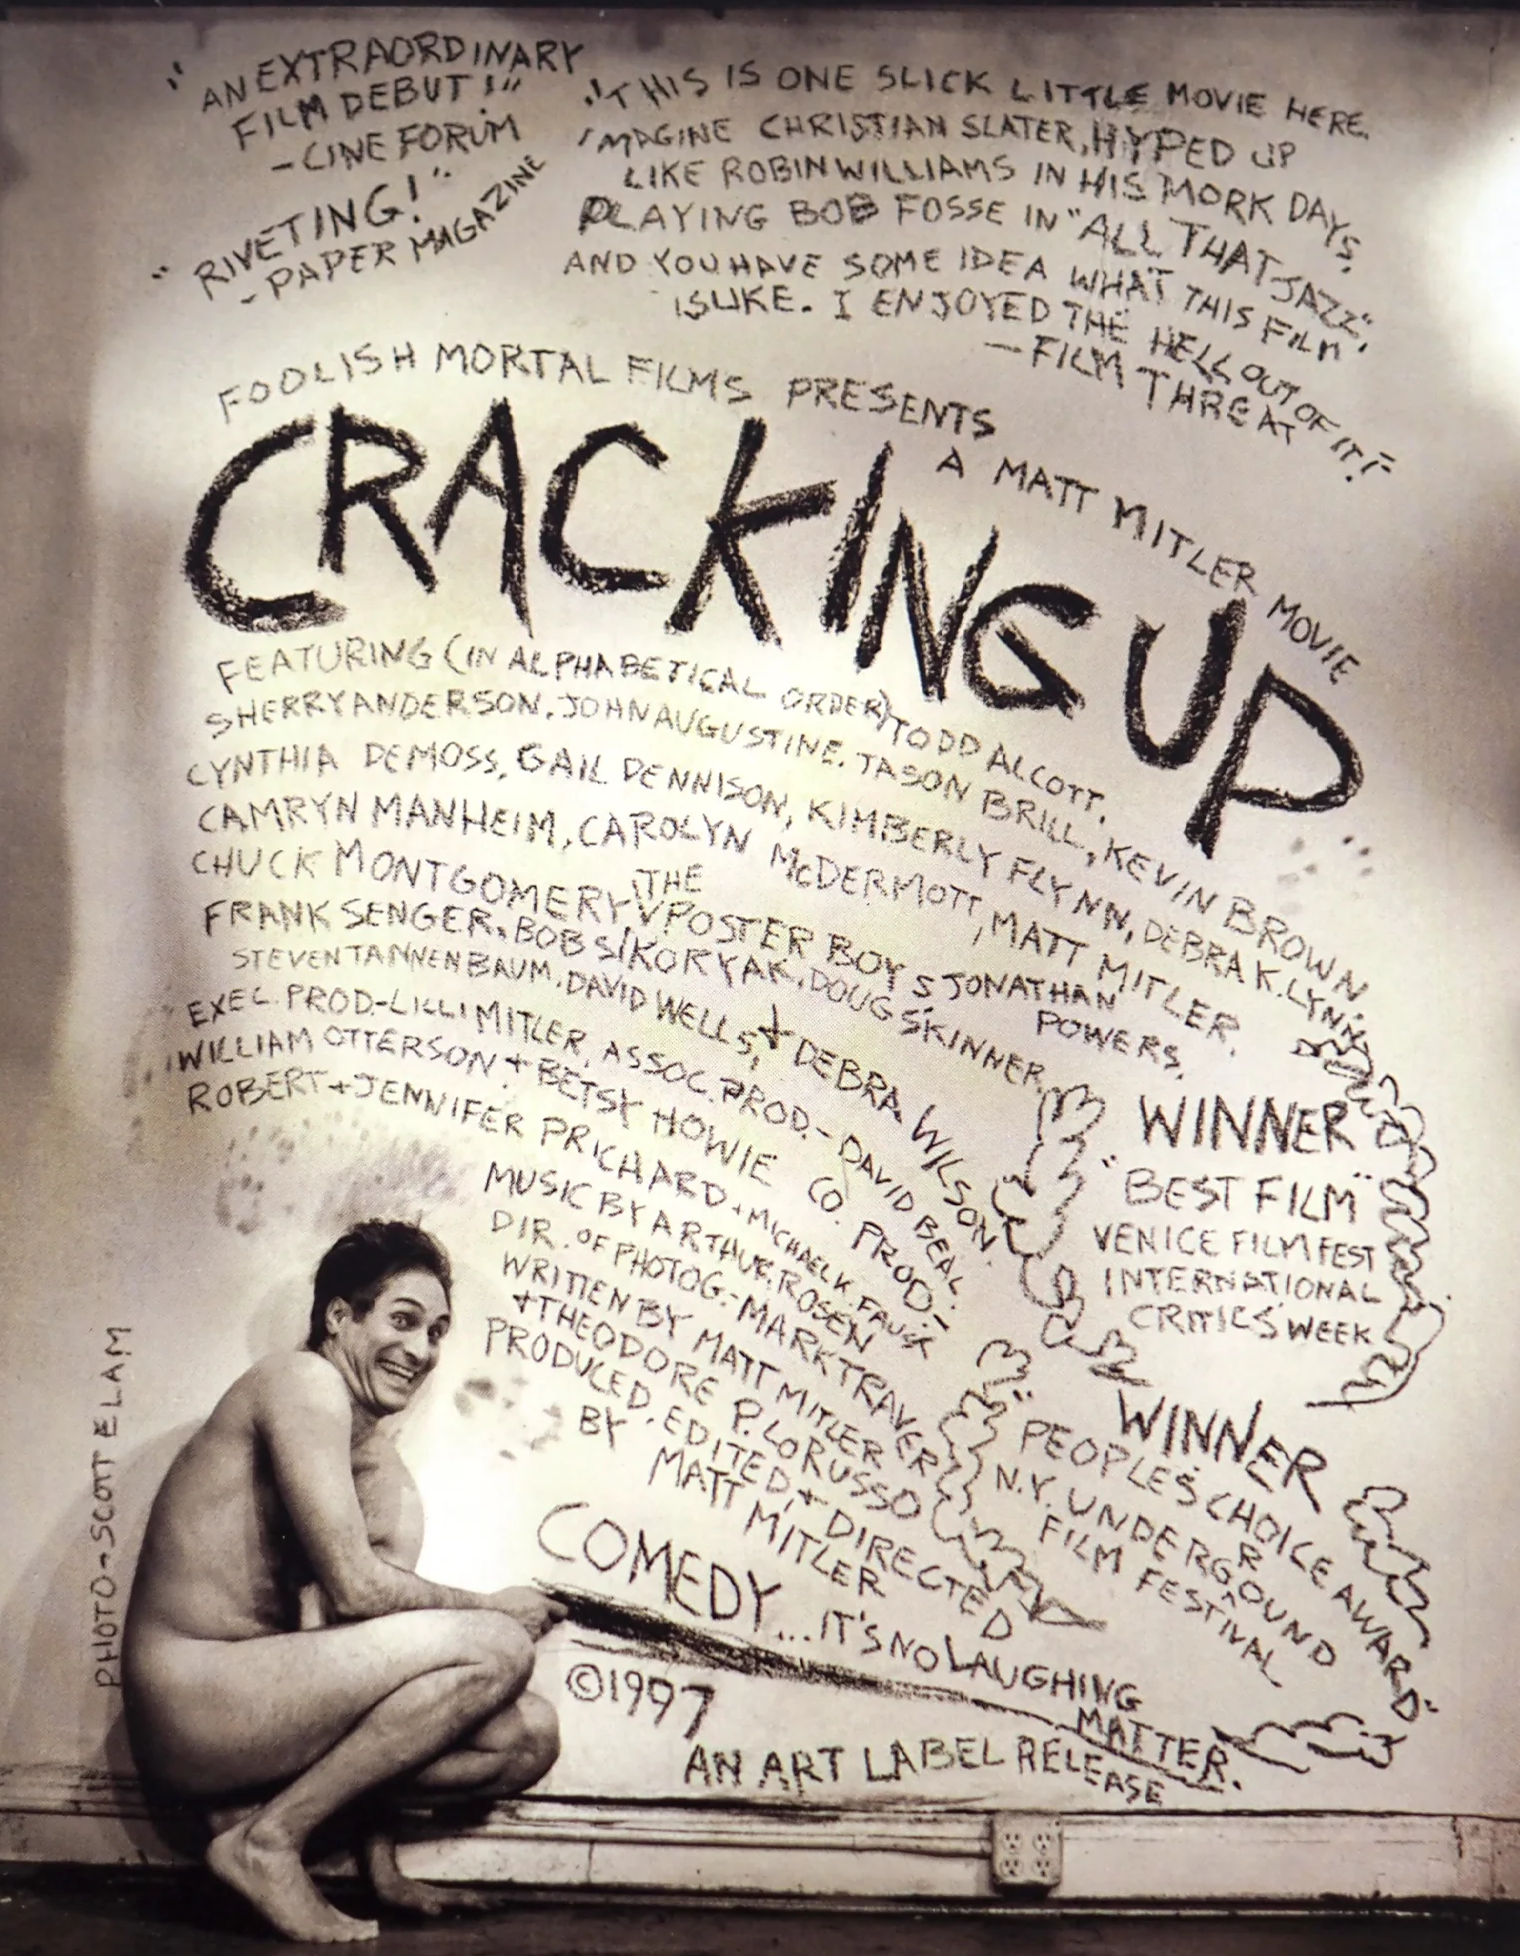 "AN EXTRAORDINARY
FILM DEBUT!"
-CINE FORUM
"RIVETING!"
-PAPER MAGAZINE
"THIS IS ONE SLICK LITTLE MOVIE HERE.
IMAGINE CHRISTIAN SLATER, HYPED UP
LIKE ROBIN WILLIAMS IN HIS MORK DAYS,
PLAYING BOB FOSSE IN "ALL THAT JAZZ",
AND YOU HAVE SOME IDEA WHAT THIS FILM
IS LIKE. I ENJOYED THE HELL OUT OF IT!"
—FILM THREAT
FOOLISH MORTAL FILMS PRESENTS
A MATT MITLER MOVIE
CRACKING UP
FEATURING (IN ALPHABETICAL ORDER) TODD ALCOTT,
SHERRY ANDERSON, JOHN AUGUSTINE, JASON BRILL, KEVIN BROWN,
CYNTHIA DEMOSS, GAIL DENNISON, KIMBERLY FLYNN, DEBRA K. LYNN,
CAMRYN MANHEIM, CAROLYN McDERMOTT, MATT MITLER,
CHUCK MONTGOMERY, THE POSTER BOYS JONATHAN POWERS,
FRANK SENGER, BOB SIKORYAK, DOUG SKINNER,
STEVEN TANNENBAUM, DAVID WELLS, + DEBRA WILSON.
EXEC. PROD.-LILLI MITLER, ASSOC. PROD.- DAVID BEAL,
WILLIAM OTTERSON + BETSY HOWIE CO. PROD.-
ROBERT + JENNIFER PRICHARD + MICHAEL K. FAUST
MUSIC BY ARTHUR ROSEN
DIR. OF PHOTOG.- MARK TRAVER
WRITTEN BY MATT MITLER
+ THEODORE P. LORUSSO
PRODUCED, EDITED, + DIRECTED
BY MATT MITLER
WINNER
"BEST FILM"
VENICE FILM FEST
INTERNATIONAL
CRITICS WEEK
WINNER
"PEOPLE'S CHOICE AWARD"
N.Y. UNDERGROUND
FILM FESTIVAL
COMEDY... IT'S NO LAUGHING
MATTER.
©1997
AN ART LABEL RELEASE
PHOTO-SCOTT ELAM